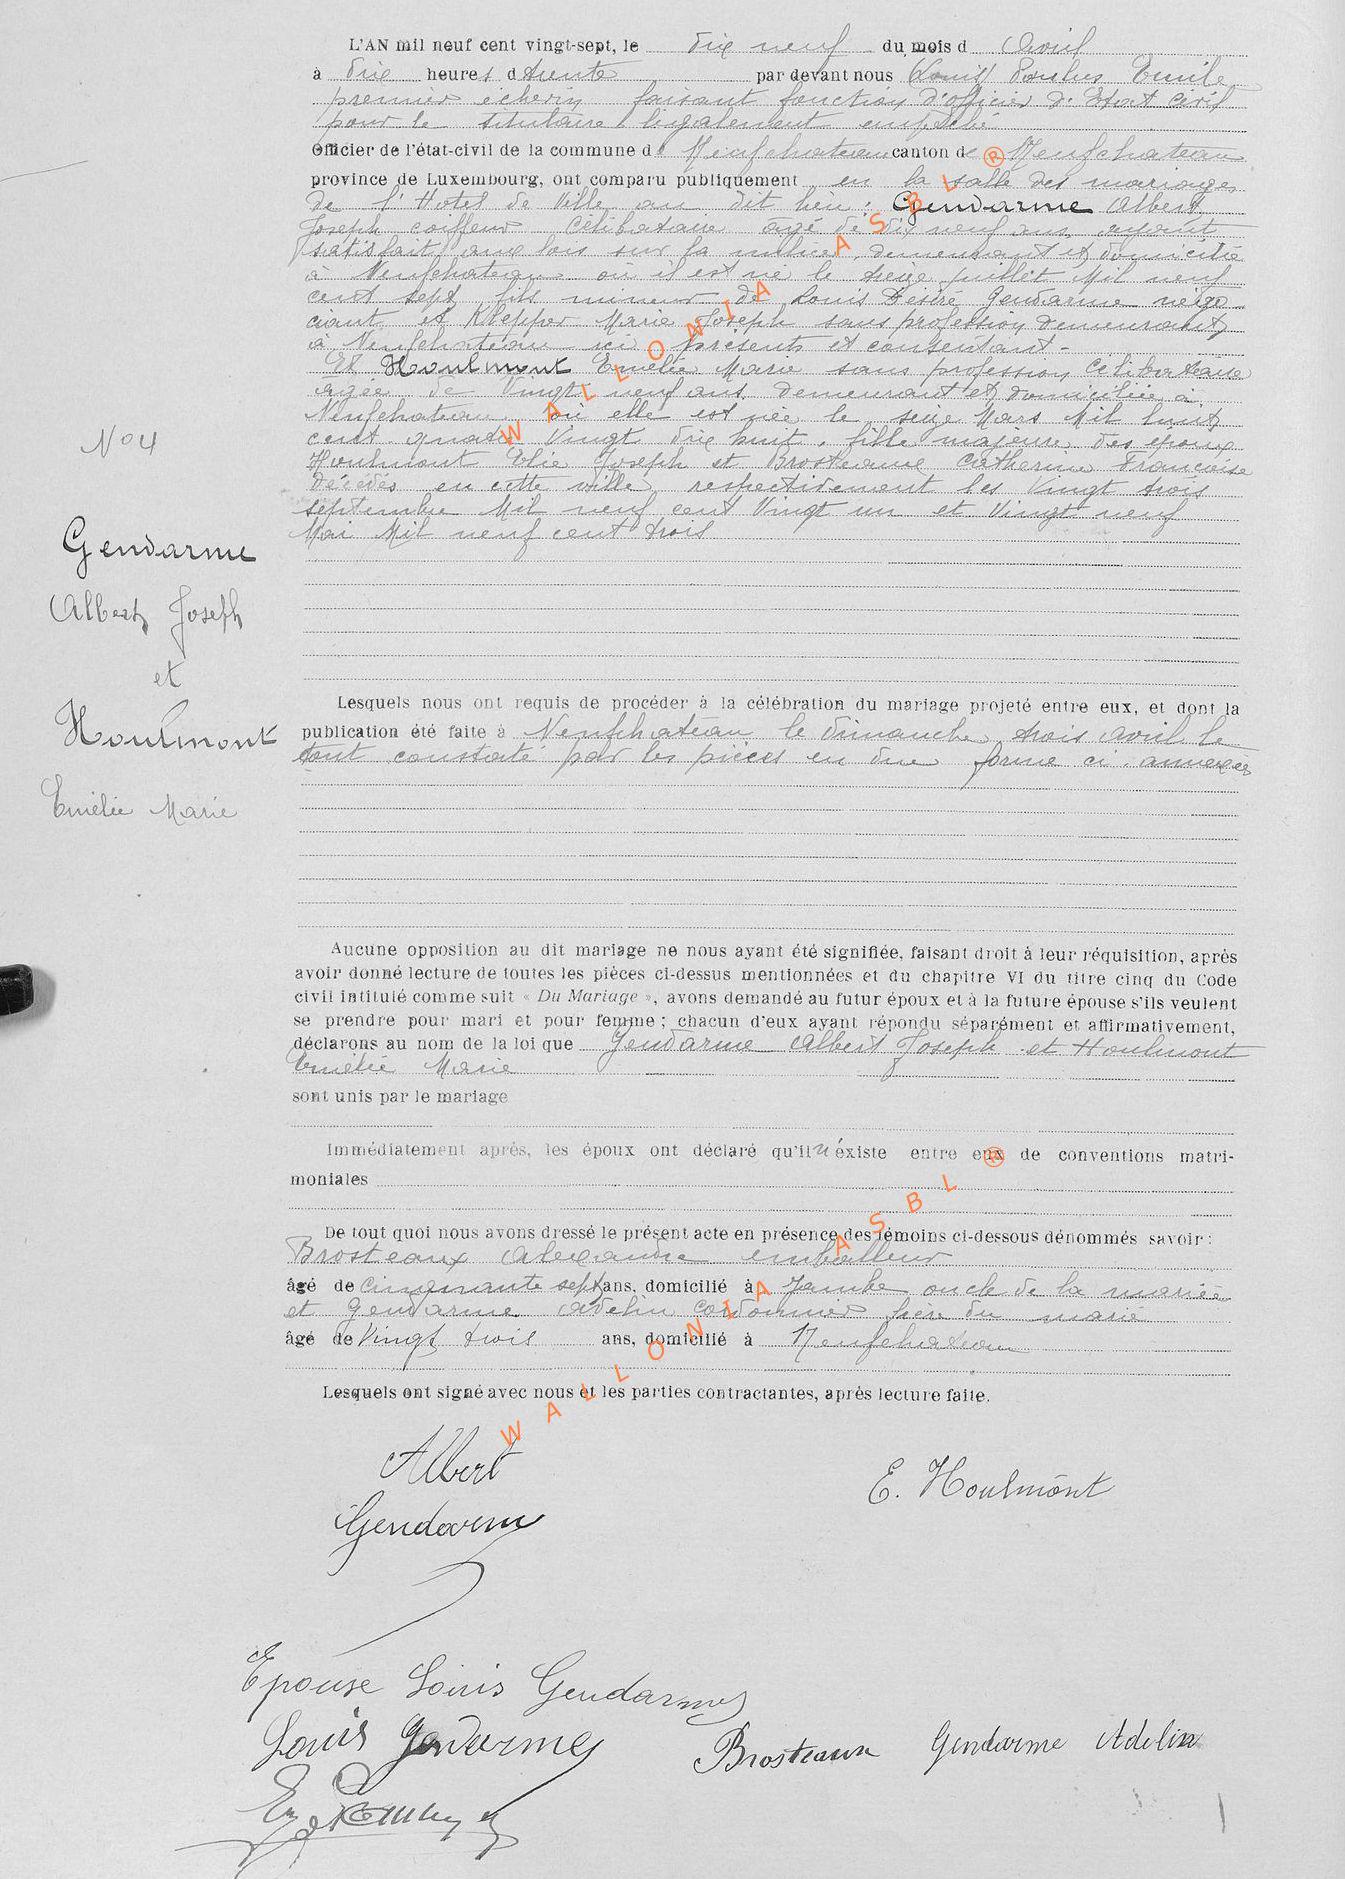 L'AN mil neuf cent vingt-sept, le dix neuf du mois d Avril
à dix heures d trente par devant nous (Louis) Emile
premier échevin faisant fonction d'officier d'Etat civil
pour le titulaire légalement empêché
Officier de l'état-civil de la commune de Neufchateau canton de Neufchateau
province de Luxembourg, ont comparu publiquement en la salle des mariages
de l'Hotel de Ville au dit lieu : Gendarme Albert
Joseph coiffeur célibataire âgé de dix neuf ans ayant
satisfait aux lois sur la milice, demeurant et domicilié
à Neufchateau où il est né le treize juillet Mil neuf
cent sept fils mineur de Louis Desiré Gendarme négo
ciant et Klepper Marie Joseph sans profession demeurant
à Neufchateau ici présents et consentant -
Et Houlmont Emélie Marie sans profession célibataire
âgée de Vingt neuf ans demeurant et domiciliée à
Neufchateau où elle est née le seize Mars Mil huit
cent quatre Vingt dix huit, fille majeure des époux
Houlmont Elie Joseph et Brosteaux Catherine Françoise
décédés en cette ville respectivement les Vingt trois
septembre Mil neuf cent Vingt un et Vingt neuf
Mai Mil neuf cent trois
N° 4
Gendarme
Albert Joseph
et
Houlmont
Emélie Marie
Lesquels nous ont requis de procéder à la célébration du mariage projeté entre eux, et dont la
publication été faite à Neufchateau le dimanche trois avril le
tout constaté par les pièces en due forme ci-annexées
Aucune opposition au dit mariage ne nous ayant été signifiée, faisant droit à leur réquisition, après
avoir donné lecture de toutes les pièces ci-dessus mentionnées et du chapitre VI du titre cinq du Code
civil intitulé comme suit « Du Mariage », avons demandé au futur époux et à la future épouse s'ils veulent
se prendre pour mari et pour femme ; chacun d'eux ayant répondu séparément et affirmativement,
déclarons au nom de la loi que Gendarme Albert Joseph et Houlmont
Emélie Marie
sont unis par le mariage
Immédiatement après, les époux ont déclaré qu'il n'existe entre eux de conventions matri-
moniales
De tout quoi nous avons dressé le présent acte en présence des témoins ci-dessous dénommés savoir :
Brosteaux Alexandre emballeur
âgé de cinquante sept ans, domicilié à Jambe oncle de la mariée
et Gendarme Adelin cordonnier frère du marié
âgé de Vingt trois ans, domicilié à Neufchateau
Lesquels ont signé avec nous et les parties contractantes, après lecture faite.
Albert
Gendarme
E. Houlmont
Epouse Louis Gendarme
Louis Gendarme
Brosteaux
Gendarme Adelin
WALLONIA ASBL ®
WALLONIA ASBL ®